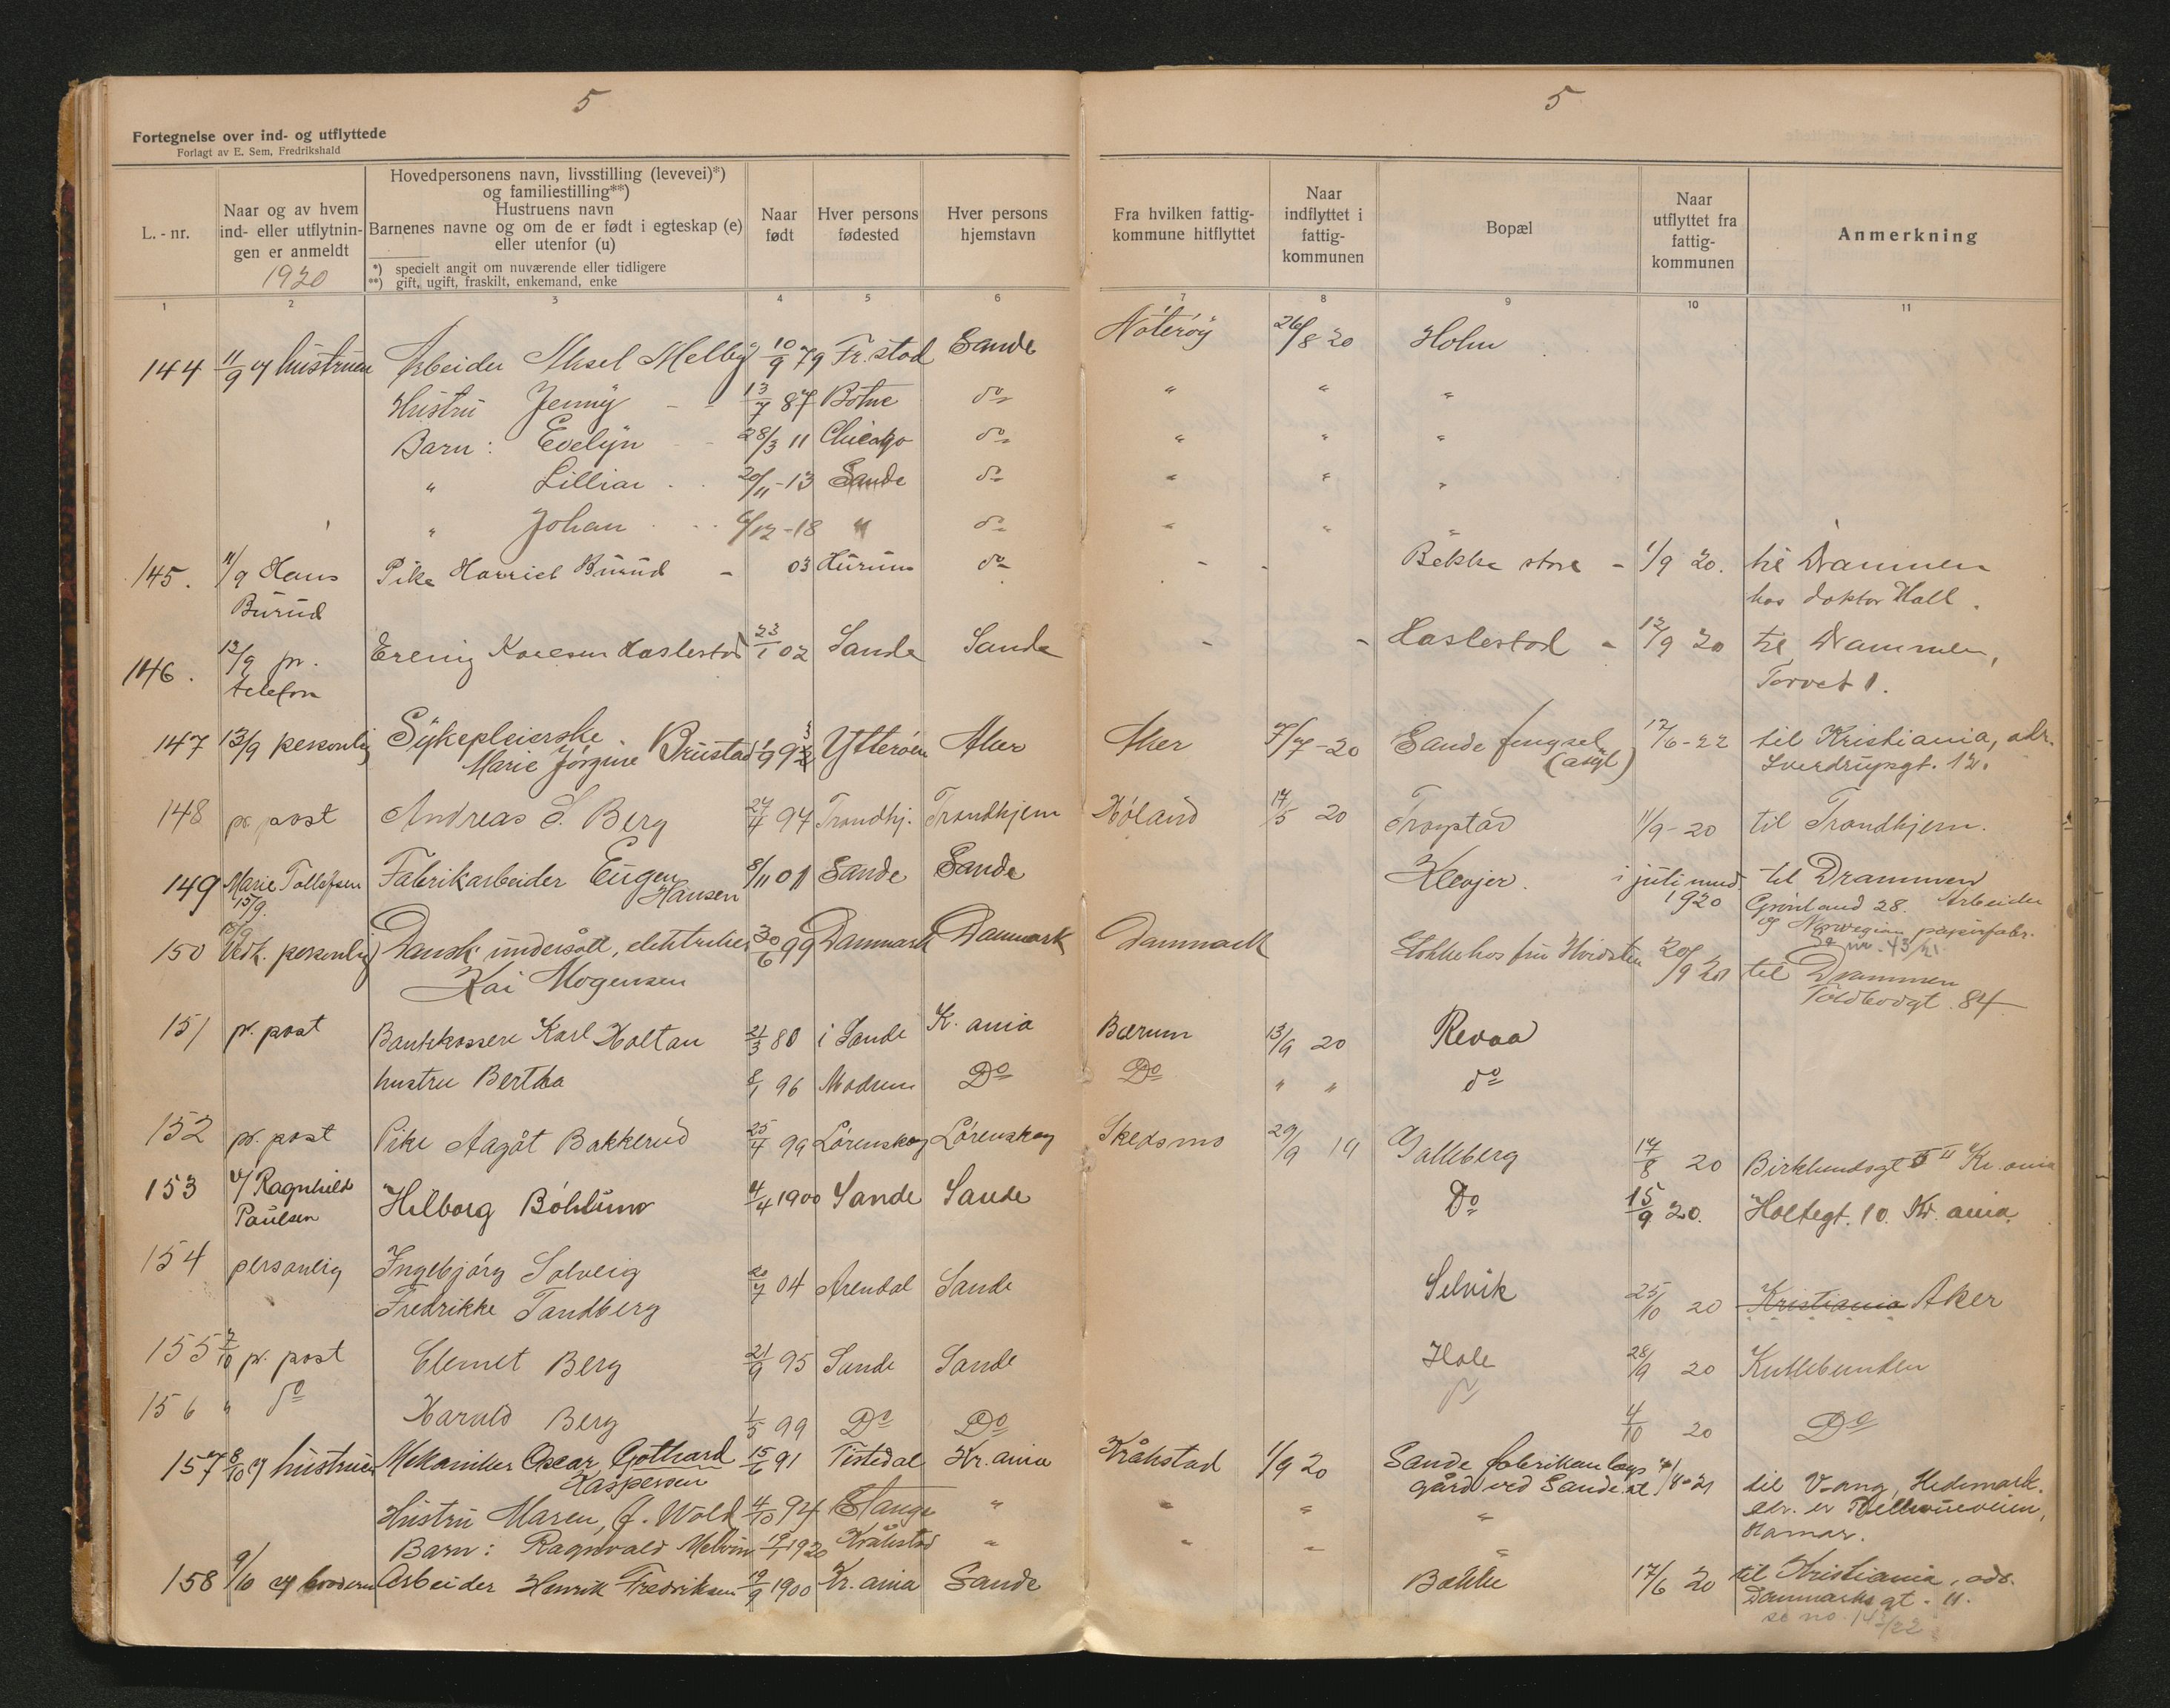 5
Fortegnelse over ind- og utflyttede
Forlagt av E. Sem, Fredrikshald
L. - nr.
Naar og av hvem
ind- eller utflytnin-
gen er anmeldt
1920
Hovedpersonens navn, livsstilling (levevei)*)
og familiestilling**)
Hustruens navn
Barnenes navne og om de er født i egteskap (e)
eller utenfor (u)
*) specielt angit om nuværende eller tidligere
**) gift, ugift, fraskilt, enkemand, enke
Naar
født
Hver persons
fødested
Hver persons
hjemstavn
5
Fra hvilken fattig-
kommune hitflyttet
Naar
indflyttet i
fattig-
kommunen
Bopæl
Naar
utflyttet fra
fattig-
kommunen
Anmerkning
1 2 3 4 5 6 7 8 9 10 11
144 11/9 af hustruen Arbeider Aksel Melby 10/9 79 Fr.stad Sande Nøterøy 26/8 20 Holm
Hustru Jenny - - 13/7 87 Botne do " " "
Barn: Evelyn - - 28/3 11 Chicago do " " "
" Lillian - - 20/11-13 Sande do " " "
" Johan - - 6/12-18 " do " " "
145. 11/9 Hans Pike Harriet Burud - 03 Hurum do - - Bekke store - 1/9 20. til Drammen
Burud hos doktor Hall.
146. 12/9 pr. Erling Karlsen Haslestad 23/1 02 Sande Sande - - Haslestad - 12/9 20 til Drammen,
telefon Torvet 1.
147 13/9 personlig Sykepleierske 1/9 93 Ytterøen Aker Aker 7/7-20 Sande fengsel 17/6-22 til Kristiania, adr.
Marie Jørgine Brustad (asyl) Sverdrupsgt. 12.
148 pr post Andreas S. Berg 27/7 94 Trondhj. Trondhjem Høland 14/5 20 Tronstad 11/9-20 til Trondhjem.
149 Marie Tollefsen Fabrikarbeider Eugen 8/11 01 Sande Sande Klevjer. i juli mnd. til Drammen
15/9. Hansen 1920 Grønland 28. Arbeider
og Norwegian papirfabr.
Se nr. 43/21
150 15/9 Vedk. personlig Dansk undersått, elektriker 30/6 99 Danmark Danmark Danmark Stokke hos fru Hvidsten 20/9 20 til Drammen
Kai Mogensen Toldbodgt. 84
151 pr. post Bankkasserer Karl Holtan 21/3 80 i Sande K.ania Bærum 13/9 20 Revaa
hustru Bertha 8/1 96 Modum Do Do " " do
152 pr. post Pike Aagåt Bakkerud 25/7 99 Lørenskog Lørenskog Skedsmo 29/9 19 Galleberg 17/8 20 Birklundsgt 5 II Kr.ania
153 v/ Ragnhild Hilborg Bøhlum 4/4 1900 Sande Sande Do 15/9 20. Holtegt. 10. Kr.ania
Paulsen
154 personlig Ingebjørg Solveig 20/7 04 Arendal Sande Selvik 25/10 20 Kristiania Aker
Fredrikke Tandberg
155 7/10 pr. post Clemet Berg 21/9 95 Sande Sande Hole 28/9 20 Kullebunden
156 " do Harald Berg 1/5 99 Do Do do 4/10 20 Do
157 8/10 af hustruen Mekaniker Oscar Gothard 15/6 91 Tistedal Kr.ania Kråkstad 1/9 20 Sande fabrikanlægs
Kaspersen gård ved Sande st til Vang, Hedemark.
Hustru Maren, f. Wold 4/10 94 Stange " " " " adr. er Bellevueveien,
Hamar.
Barn: Ragnvald Melvin 1920 Kråkstad " " " "
158 9/10 af broderen Arbeider Henrik Fredriksen 19/9 1900 Kr.ania Sande Bække 17/6 20 til Kristiania, adr.
Danmarks gt. 11.
se no. 143/22